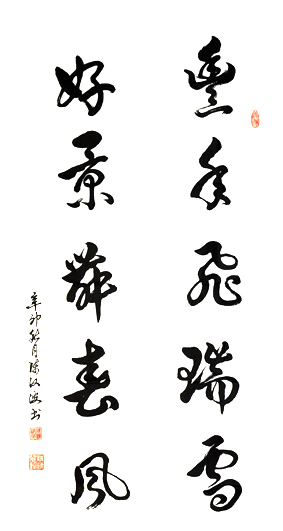 豐年飛瑞雪
好景舞春風
辛卯秋月陈汉波书